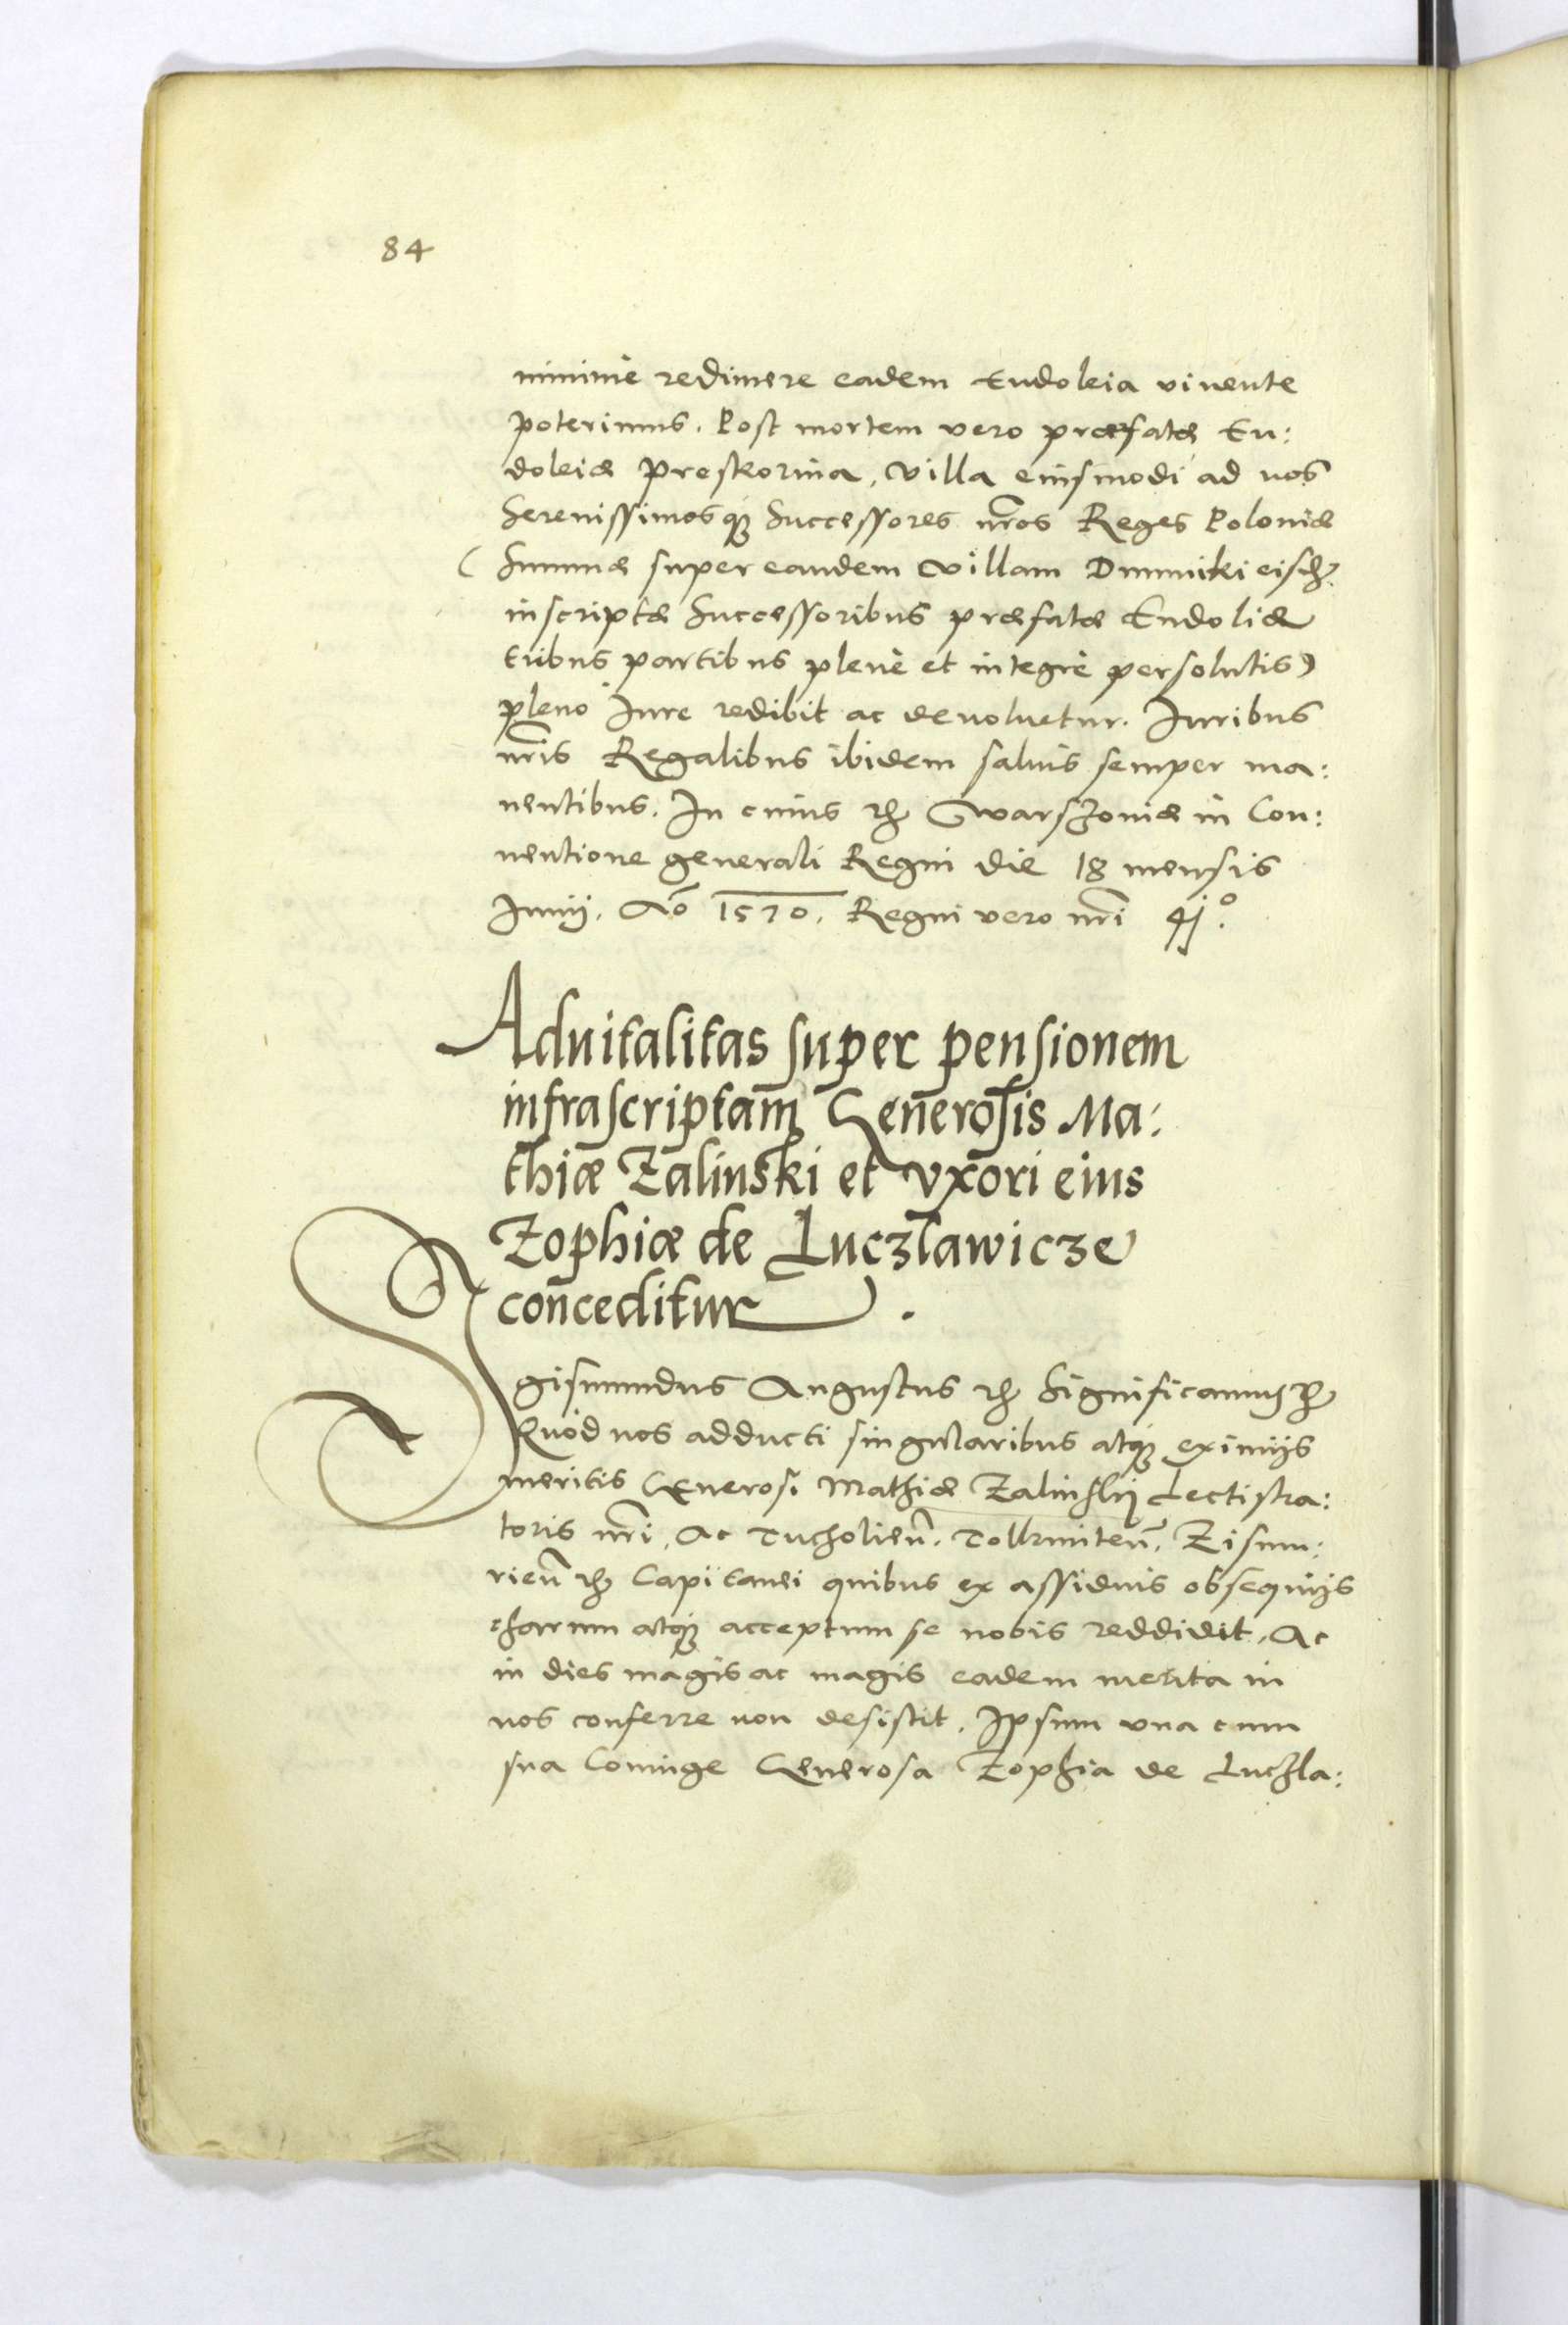 84
minimè redimere eadem Eudokia viuente
poterimus. Post mortem vero præfatæ Eu:
dokiæ Preskorina, Villa eiusmodi ad nos
Serenissimosq3 Successores nr̃os Reges Poloniæ
( Summæ super eandem Villam Dmuniki
inscriptæ Successoribus præfatæ Eudoliæ
tribus partibus plenè et integrè persolutis)
pleno Iure redibit ac deuoluetur. Iuribus
nr̃is Regalibus ibidem saluis semper ma:
nentibus. In cuius rei Warszouiæ in Con:
uentione generali Regni die 18 mensis
Iunij. Ao 1570. Regni vero nr̃i 41.°
Aduitalitas super pensionem
infrascriptam Generosis Ma:
thiæ Zalinski et vxori eius
Zophiæ de Lucżlawicze
conceditur.
Sigismundus Augustus etc Significamus etc
Quod nos adducti singularibus atq3 eximijs
meritis Generosi Mathiæ Zalinskij Lectistra:
toris nr̃i, Ac Tucholień. Tolkmiteń. Zisum:
rień etc Capitanei quibus ex assiduis obsequijs
charum atq3 acceptum se nobis reddidit, Ac
in dies magis ac magis eadem merita in
nos conferre non desistit. Ipsum vna cum
sua Coniuge Generosa Zophia de Luczla: